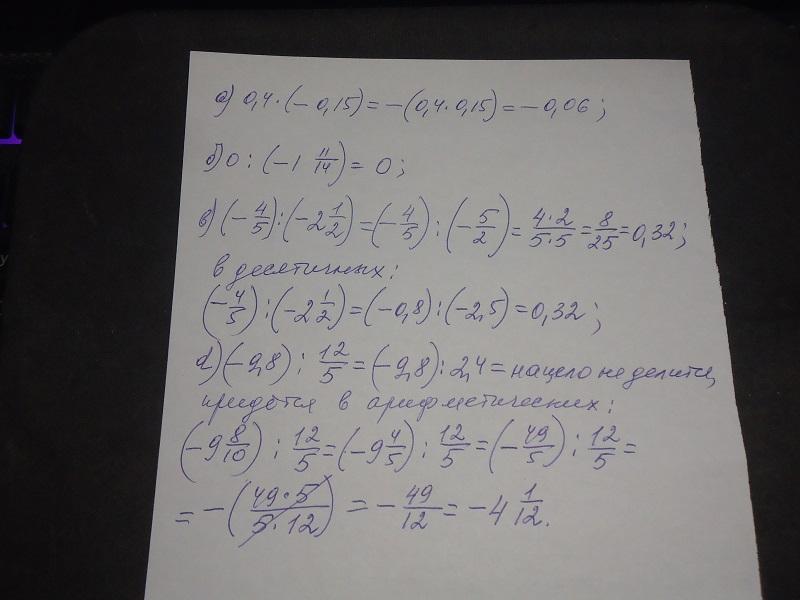 а) 0,4·(−0,15)=−(0,4·0,15)=−0,06;
б) 0 : (−1 11/14) = 0;
в) (−4/5):(−2 1/2)=(−4/5):(−5/2)=4·2/5·5=8/25=0,32;
в десятичных:
(−4/5):(−2 1/2)=(−0,8):(−2,5)=0,32;
d) (−9,8) : 12/5=(−9,8):2,4=нацело не делится,
придётся в арифметических:
(−9 8/10) : 12/5=(−9 4/5) : 12/5=(−49/5) : 12/5=
=−(49·5/5·12) = −49/12=−4 1/12.